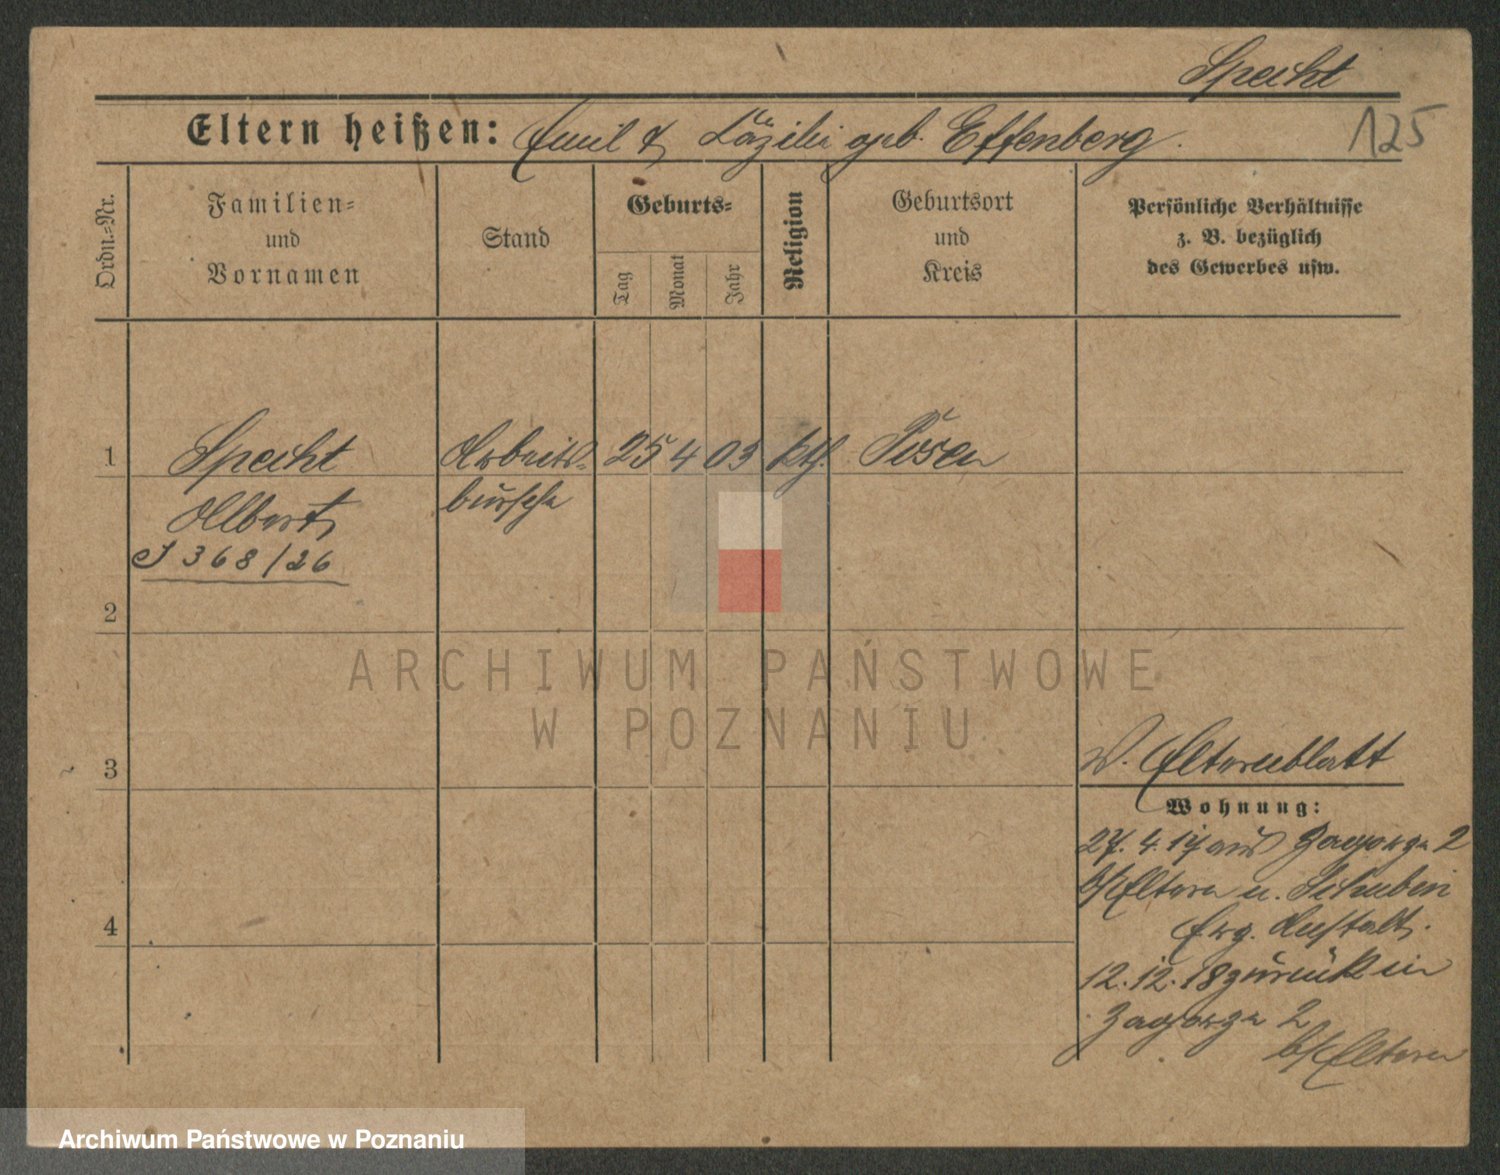 Specht
125
Eltern heißen: Emil & Läzilie geb. Effenberg.
Ordn.-Nr.
Familien-
und
Vornamen
Stand
Geburts-
Tag
Monat
Jahr
Religion
Geburtsort
und
Kreis
Persönliche Verhältnisse
z. B. bezüglich
des Gewerbes usw.
1 Specht Arbeits- 25 4 03 kth. Posen
Albert bursche
J 368/26
2
ARCHIWUM PAŃSTWOWE
W POZNANIU
3
W. Elternblatt
Wohnung:
27. 4. 17 aus Zagorze 2
b/Eltern n. Schubin
4
Erz. Anstalt.
12. 12. 18 zurück in
Zagorze 2
b/Eltern
Archiwum Państwowe w Poznaniu